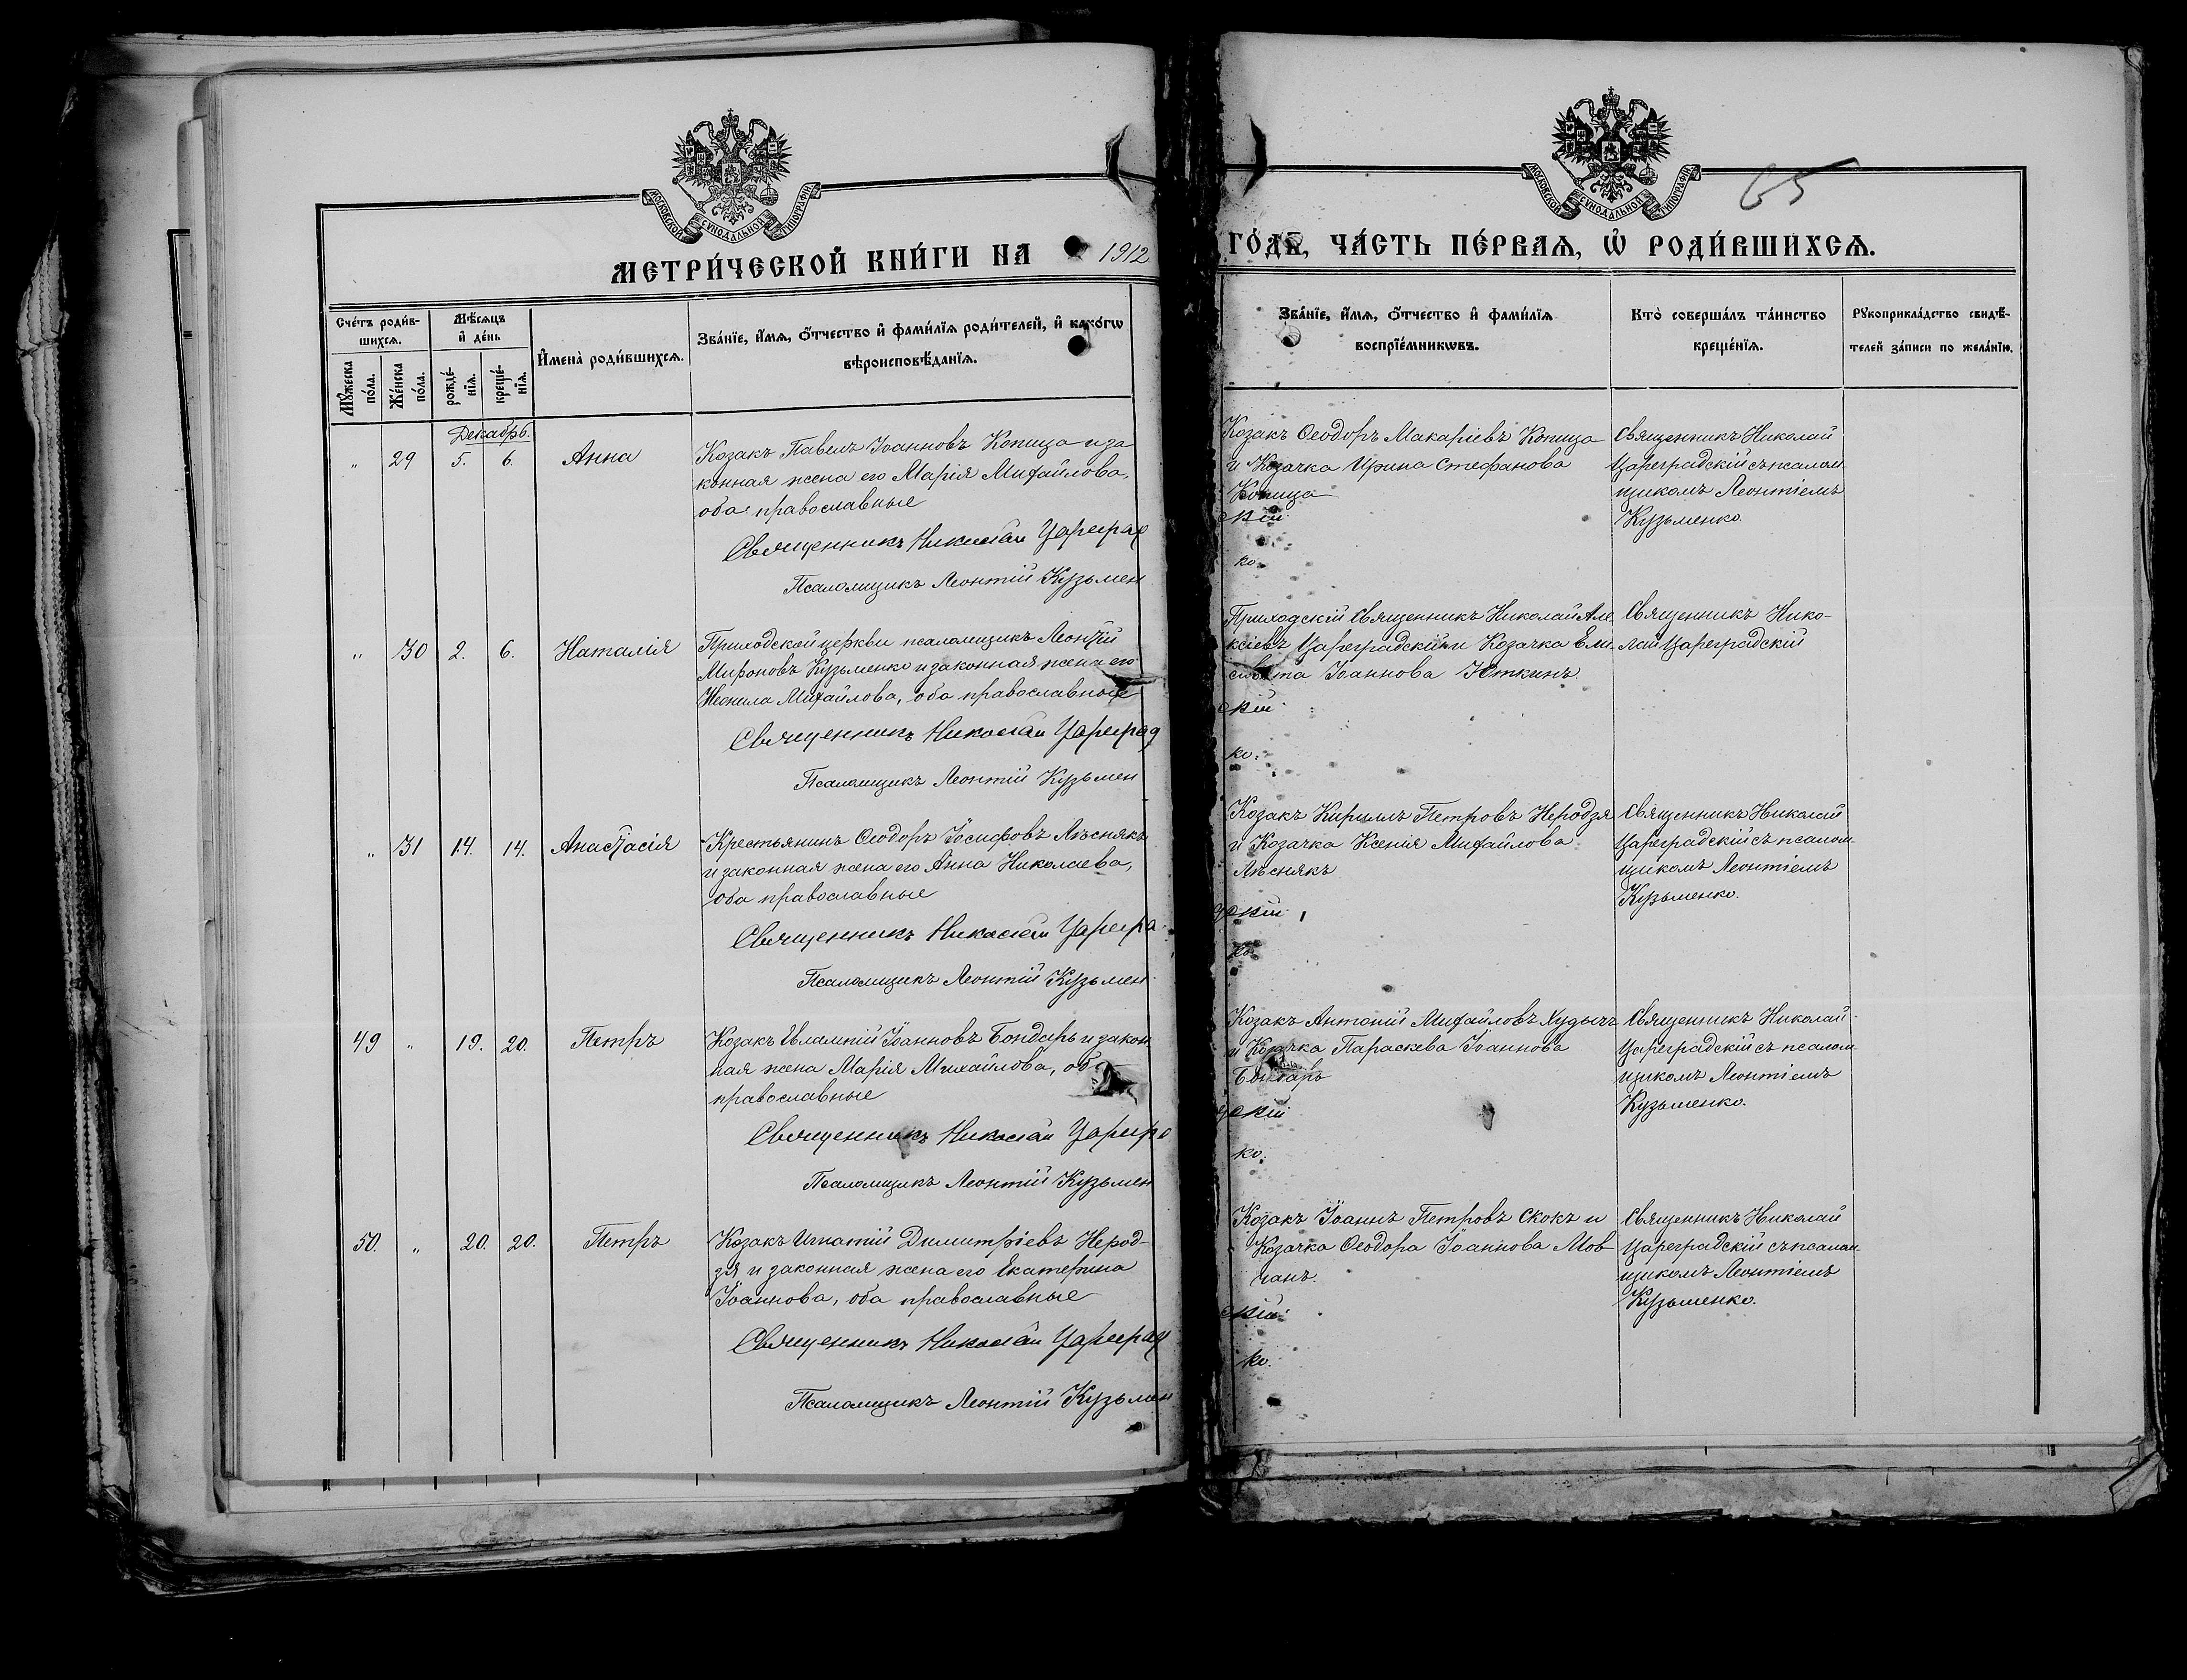 МОСКОВСКОЙ СѴНОДАЛЬНОЙ ТИПОГРАФІИ
МЕТРИ́ЧЕСКОЙ КНИ́ГИ НА 1912
Сче́тъ роди́в-
шихсѧ.
Мꙋ́жеска
по́ла.
Же́нска
по́ла.
Мѣ́сѧцъ
и҆ де́нь
рожде́-
нїѧ.
креще́-
нїѧ.
И҆мена̀ роди́вшихсѧ.
Зва́нїе, и҆́мѧ, ѻ҆́тчество и҆ фами́лїѧ роди́телей, и҆ како́гѡ
вѣроисповѣ́данїѧ.
Декабрь.
„ 29 5. 6. Анна
Козакъ Павелъ Іоанновъ Копица и за
конная жена его Марія Михайлова,
оба православные
Священникъ Николай Цареград
Псаломщикъ Леонтій Кузьмен
„ 30 2. 6. Наталія
Приходской церкви псаломщикъ Леонтій
Мироновъ Кузьменко и законная жена его
Неонила Михайлова, оба православные
Священникъ Николай Цареград
Псаломщикъ Леонтій Кузьмен
„ 31 14. 14. Анастасія
Крестьянинъ Ѳеодоръ Іосифовъ Лѣснякъ
и законная жена его Анна Николаева,
оба православные
Священникъ Николай Царегра
Псаломщикъ Леонтій Кузьмен
49 „ 19. 20. Петръ
Козакъ Евлампій Іоанновъ Бондарь и закон
ная жена Марія Михайлова, оба
православные
Священникъ Николай Царегра
Псаломщикъ Леонтій Кузьмен
50. „ 20. 20. Петръ
Козакъ Игнатій Димитріевъ Нерод-
зя и законная жена его Екатерина
Іоаннова, оба православные
Священникъ Николай Цареград
Псаломщикъ Леонтій Кузьмен
МОСКОВСКОЙ СѴНОДАЛЬНОЙ ТИПОГРАФІИ
65
ГО́ДЪ, ЧА́СТЬ ПЕ́РВАѦ, Ѡ҆ РОДИ́ВШИХСѦ.
Зва́нїе, и҆́мѧ, ѻ҆́тчество и҆ фами́лїѧ
воспрїе́мникѡвъ.
Кто̀ соверша́лъ та́инство
креще́нїѧ.
Рꙋкоприкла́дство свидѣ́-
телей за́писи по жела́нїю.
Козакъ Ѳеодоръ Макаріевъ Копица
и Козачка Ирина Стефанова
Копица
ский
ко.
Священникъ Николай
Цареградскій съ псалом
щикомъ Леонтіемъ
Кузьменко.
Приходскій Священникъ Николай Але
ксіевъ Цареградскій и Козачка Ели-
савета Іоаннова Юткинъ.
скій
ко.
Священникъ Нико-
лай Цареградскій
Козакъ Кириллъ Петровъ Неродзя
и Козачка Ксенія Михайлова
Лѣснякъ
дскій
ко.
Священникъ Николай
Цареградскій съ псалом-
щикомъ Леонтіемъ
Кузьменко.
Козакъ Антоній Михайловъ Худычъ
и Козачка Параскева Іоаннова
Бондарь
дскій
ко.
Священникъ Николай
Цареградскій съ псалом-
щикомъ Леонтіемъ
Кузьменко.
Козакъ Іоаннъ Петровъ Скокъ и
Козачка Ѳеодора Іоаннова Мов-
чанъ.
скій
ко.
Священникъ Николай
Цареградскій съ псалом-
щикомъ Леонтіемъ
Кузьменко.